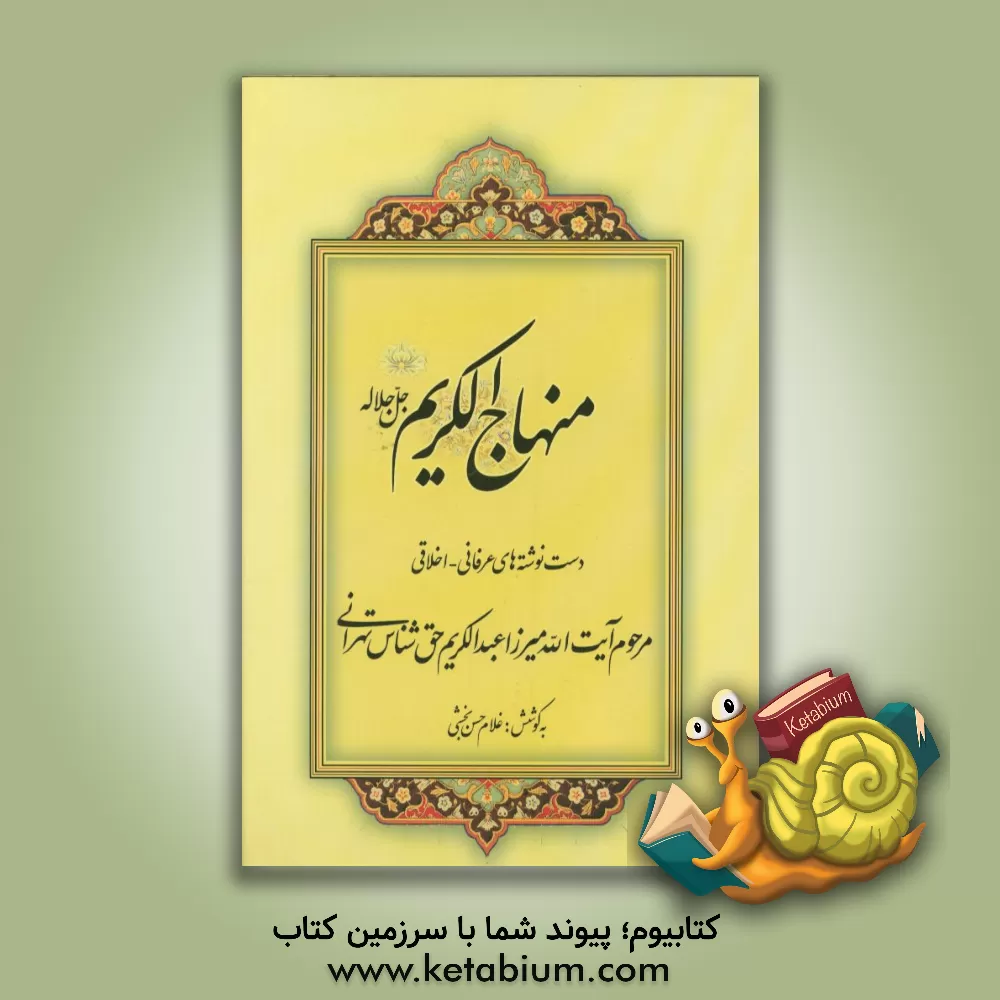 منهاج الکریم جل جلاله
دست نوشته های عرفانی - اخلاقی
مرحوم آیت الله میرزا عبدالکریم حق شناس تهرانی
به کوشش: غلام حسن بخشی
Ketabium
کتابیوم؛ پیوند شما با سرزمین کتاب
www.ketabium.com